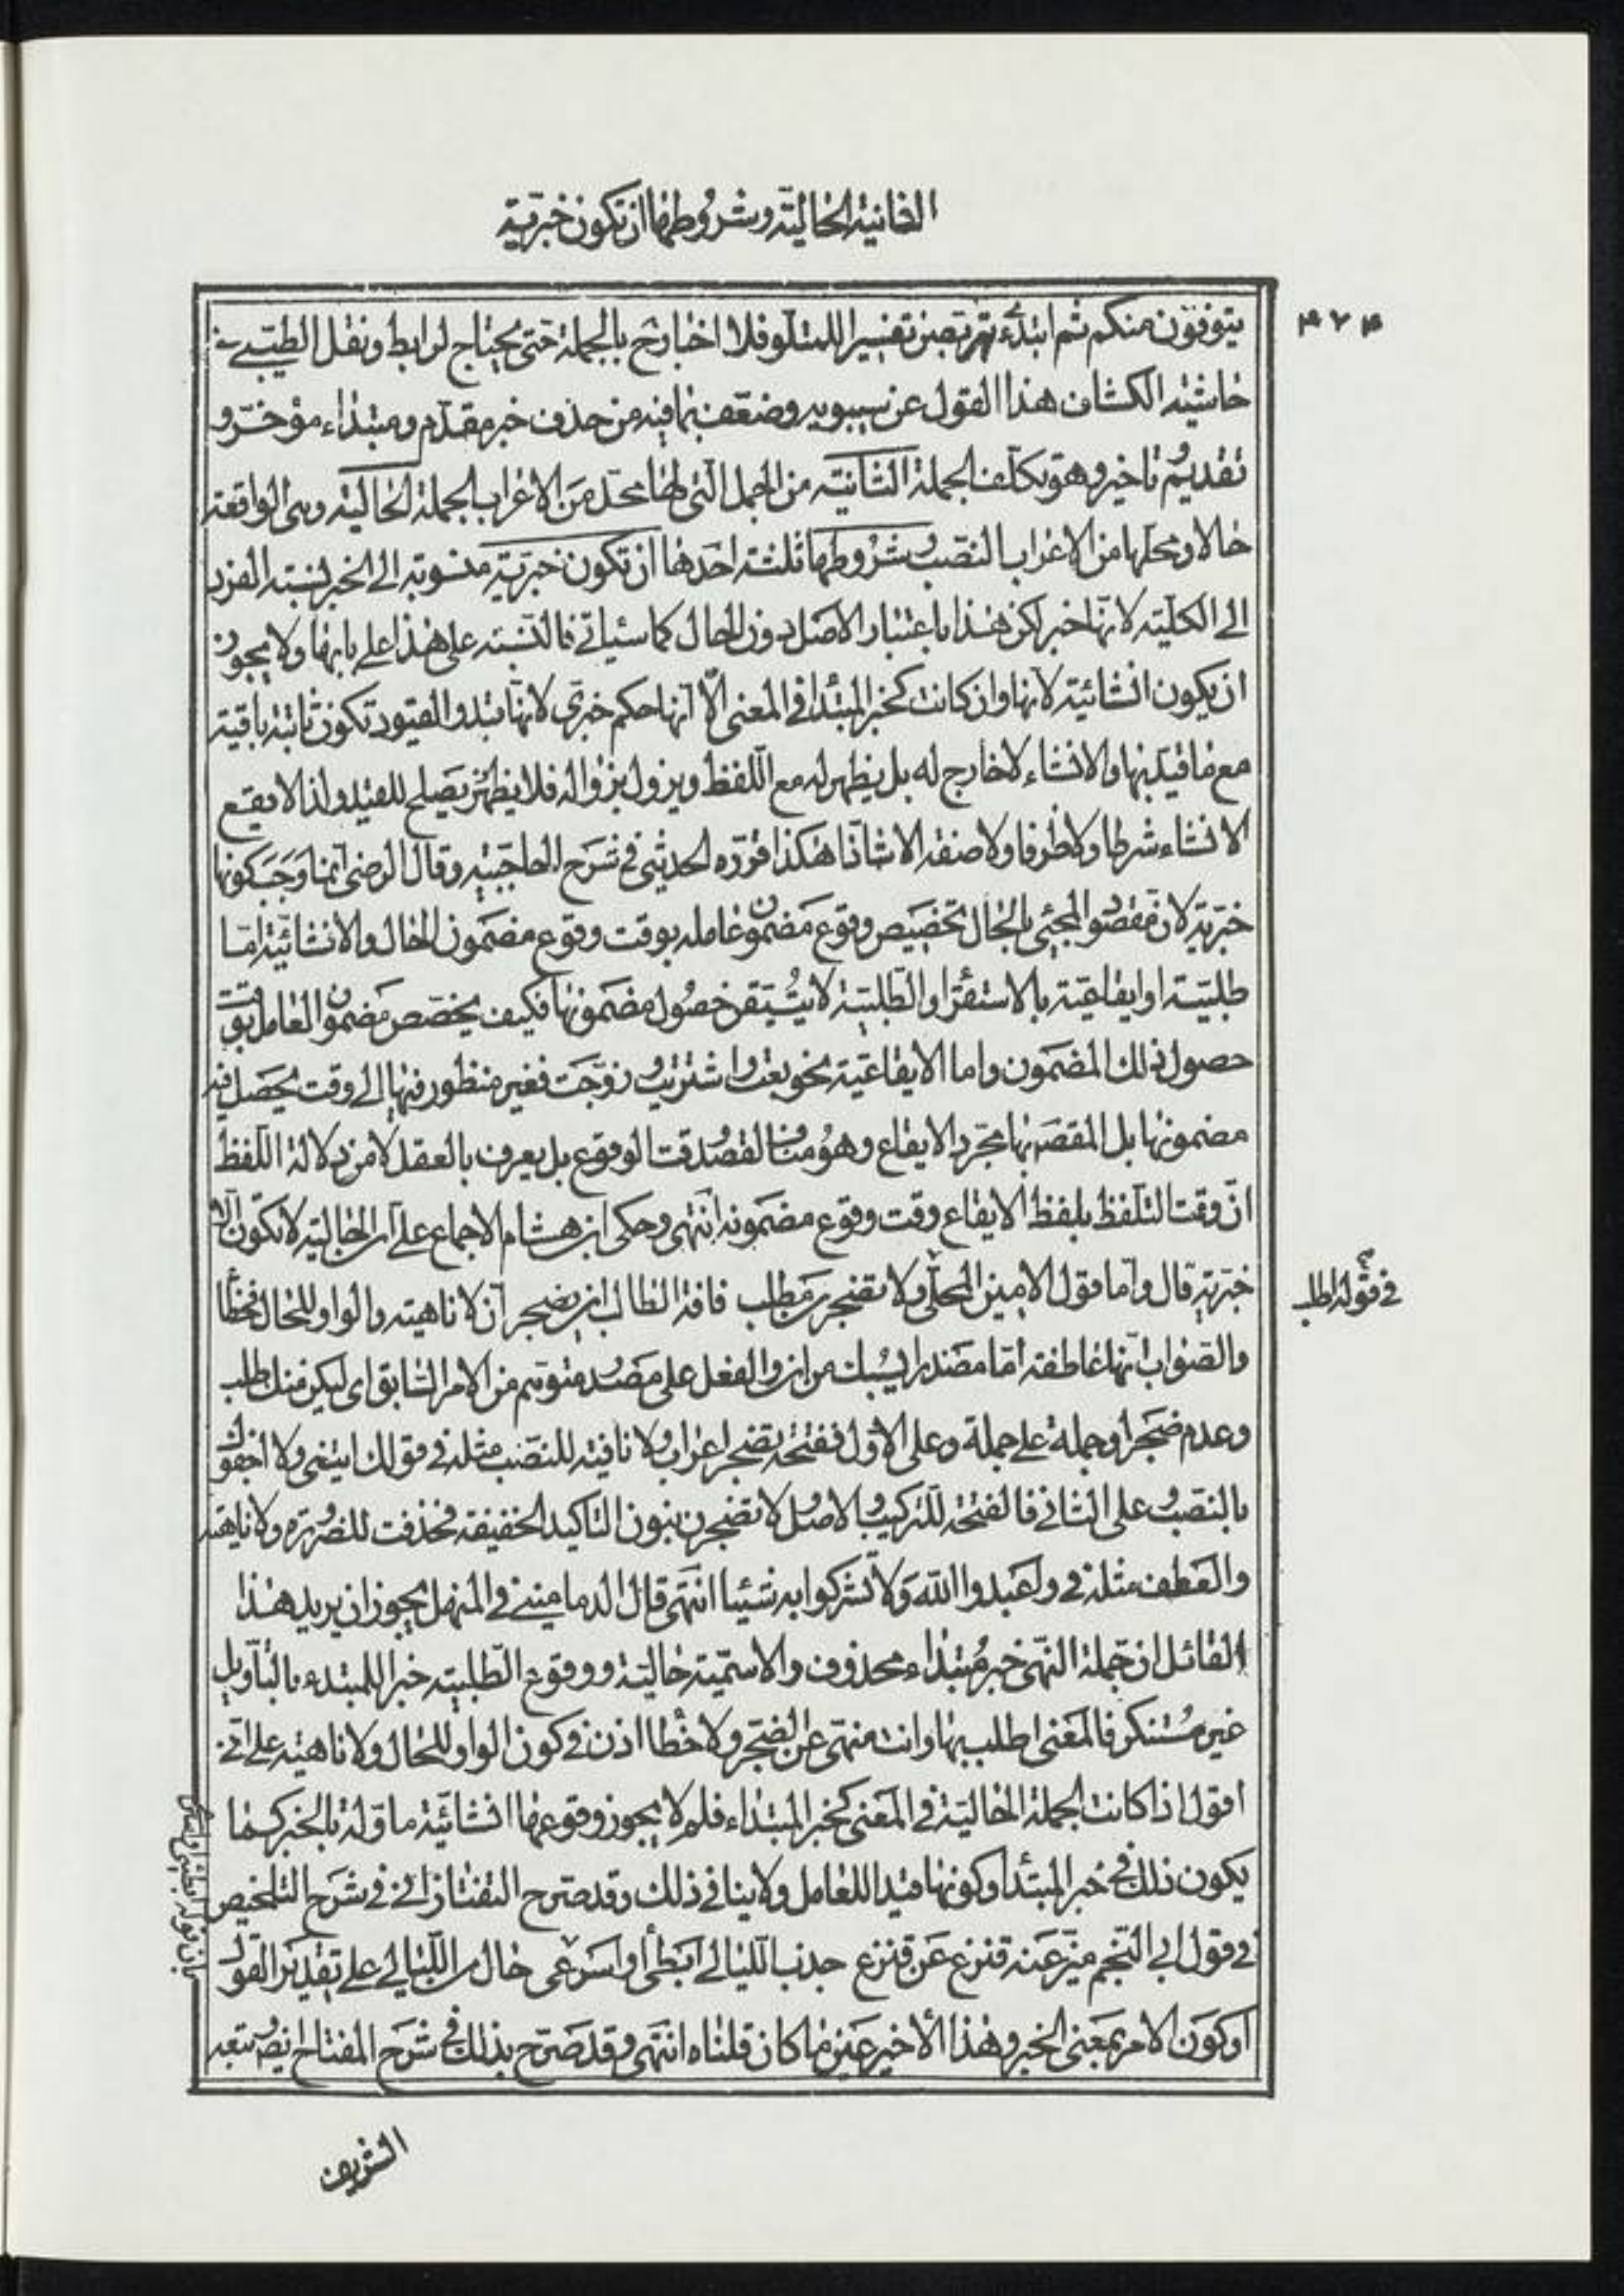 الثانية الحالية وشروطها ان تكون خبرية
٤٧٤
يتوفون منكم ثم ابتدء يتربصن تفسيرا للمتلو فلا اخبار ح بالجملة حتى يحتاج لرابط ونقل الطيبي في
حاشية الكشاف هذا القول عن سيبويه وضعف بما فيه من حذف خبر مقدم ومبتداء مؤخر و
تقديم وتاخير وهو تكلف الجملة الثانية من الجمل التي لها محل من الاعراب الجملة الحالية وهي الواقعة
حالا ومحلها من الاعراب النصب وشروطها ثلثة احدها ان تكون خبرية منسوبة الى الخبر نسبة الفرد
الى الكلية لانها خبر لكن هذا باعتبار الاصل دون الحال كما سيأتي فالنسبة على هذا على بابها ولا يجوز
ان يكون انشائية لانها وان كانت كخبر المبتدا في المعنى الا انها حكم خبري لانها قيد والقيود تكون ثابتة باقية
مع ما قيد بها والانشاء لا خارج له بل يظهر له مع اللفظ ويزول بزواله فلا يصلح للقيد ولذا لا يقع
الانشاء شرطا ولا ظرفا ولا صفة الا شاذا هكذا قرره الحديثي في شرح الحاجبية وقال الرضي انما وجب كونها
خبرية لان مقصود المجئ بالحال تخصيص وقوع مضمون عامله بوقت وقوع مضمون الحال والانشائية اما
طلبية او ايقاعية بالاستقراء والطلبية لا يتيقن حصول مضمونها فكيف يخصص مضمون العامل بوقت
حصول ذلك المضمون واما الايقاعية نحو بعت واشتريت وزوجت فغير منظور فيها الى وقت يحصل فيه
مضمونها بل المقصد بها مجرد الايقاع وهو مناف لقصد وقت الوقوع بل يعرف بالعقل لا من دلالة اللفظ
ان وقت التلفظ بلفظ الايقاع وقت وقوع مضمونه انتهى وحكى ابن هشام الاجماع على ان الحالية لا تكون الا
خبرية قال واما قول الامين المحلي ولا تضجر من مطلب فافة الطالب ان يضجر ان لا ناهية والواو للحال فخطأ
في قوله اطلب
والصواب انها عاطفة اما مصدرا يسبك من ان والفعل على مصدر متوهم من الامر السابق اى ليكن منك طلب
وعدم ضجر او جملة على جملة وعلى الاول ففتحة تضجر اعراب ولا نافية للنصب مثله في قولك ايتني ولا اجفوك
بالنصب وعلى الثاني فالفتحة للتركيب والاصل لا تضجرن بنون التاكيد الخفيفة فحذفت للضرورة ولا ناهية
والعطف مثله في واعبدوا الله ولا تشركوا به شيئا انتهى قال الدماميني في المنهل يجوز ان يريد هذا
القائل ان جملة النهى خبر مبتداء محذوف والاسمية حالية ووقوع الطلبية خبرا للمبتدء بالتاويل
غير مستنكر فالمعنى اطلب بها وانت منتهى عن الضجر ولا خطا اذن في كون الواو للحال ولا ناهية على اني
اقول اذا كانت الجملة الحالية في المعنى كخبر المبتداء فلم لا يجوز وقوعها انشائية ماولة بالخبر كما
يكون ذلك في خبر المبتدأ وكونها قيدا للعامل ولا ينافي ذلك وقد صرح التفتازاني في شرح التلخيص
في قول ابي النجم ميز عنه قنزع عن قنزع جذب الليالي ابطئي او اسرعي حال من الليالي على تقدير القول
او كون الامر بمعنى الخبر وهذا الاخير عين ما كان قلناه انتهى وقد صرح بذلك في شرح المفتاح ايضا وتبعه
الشريف